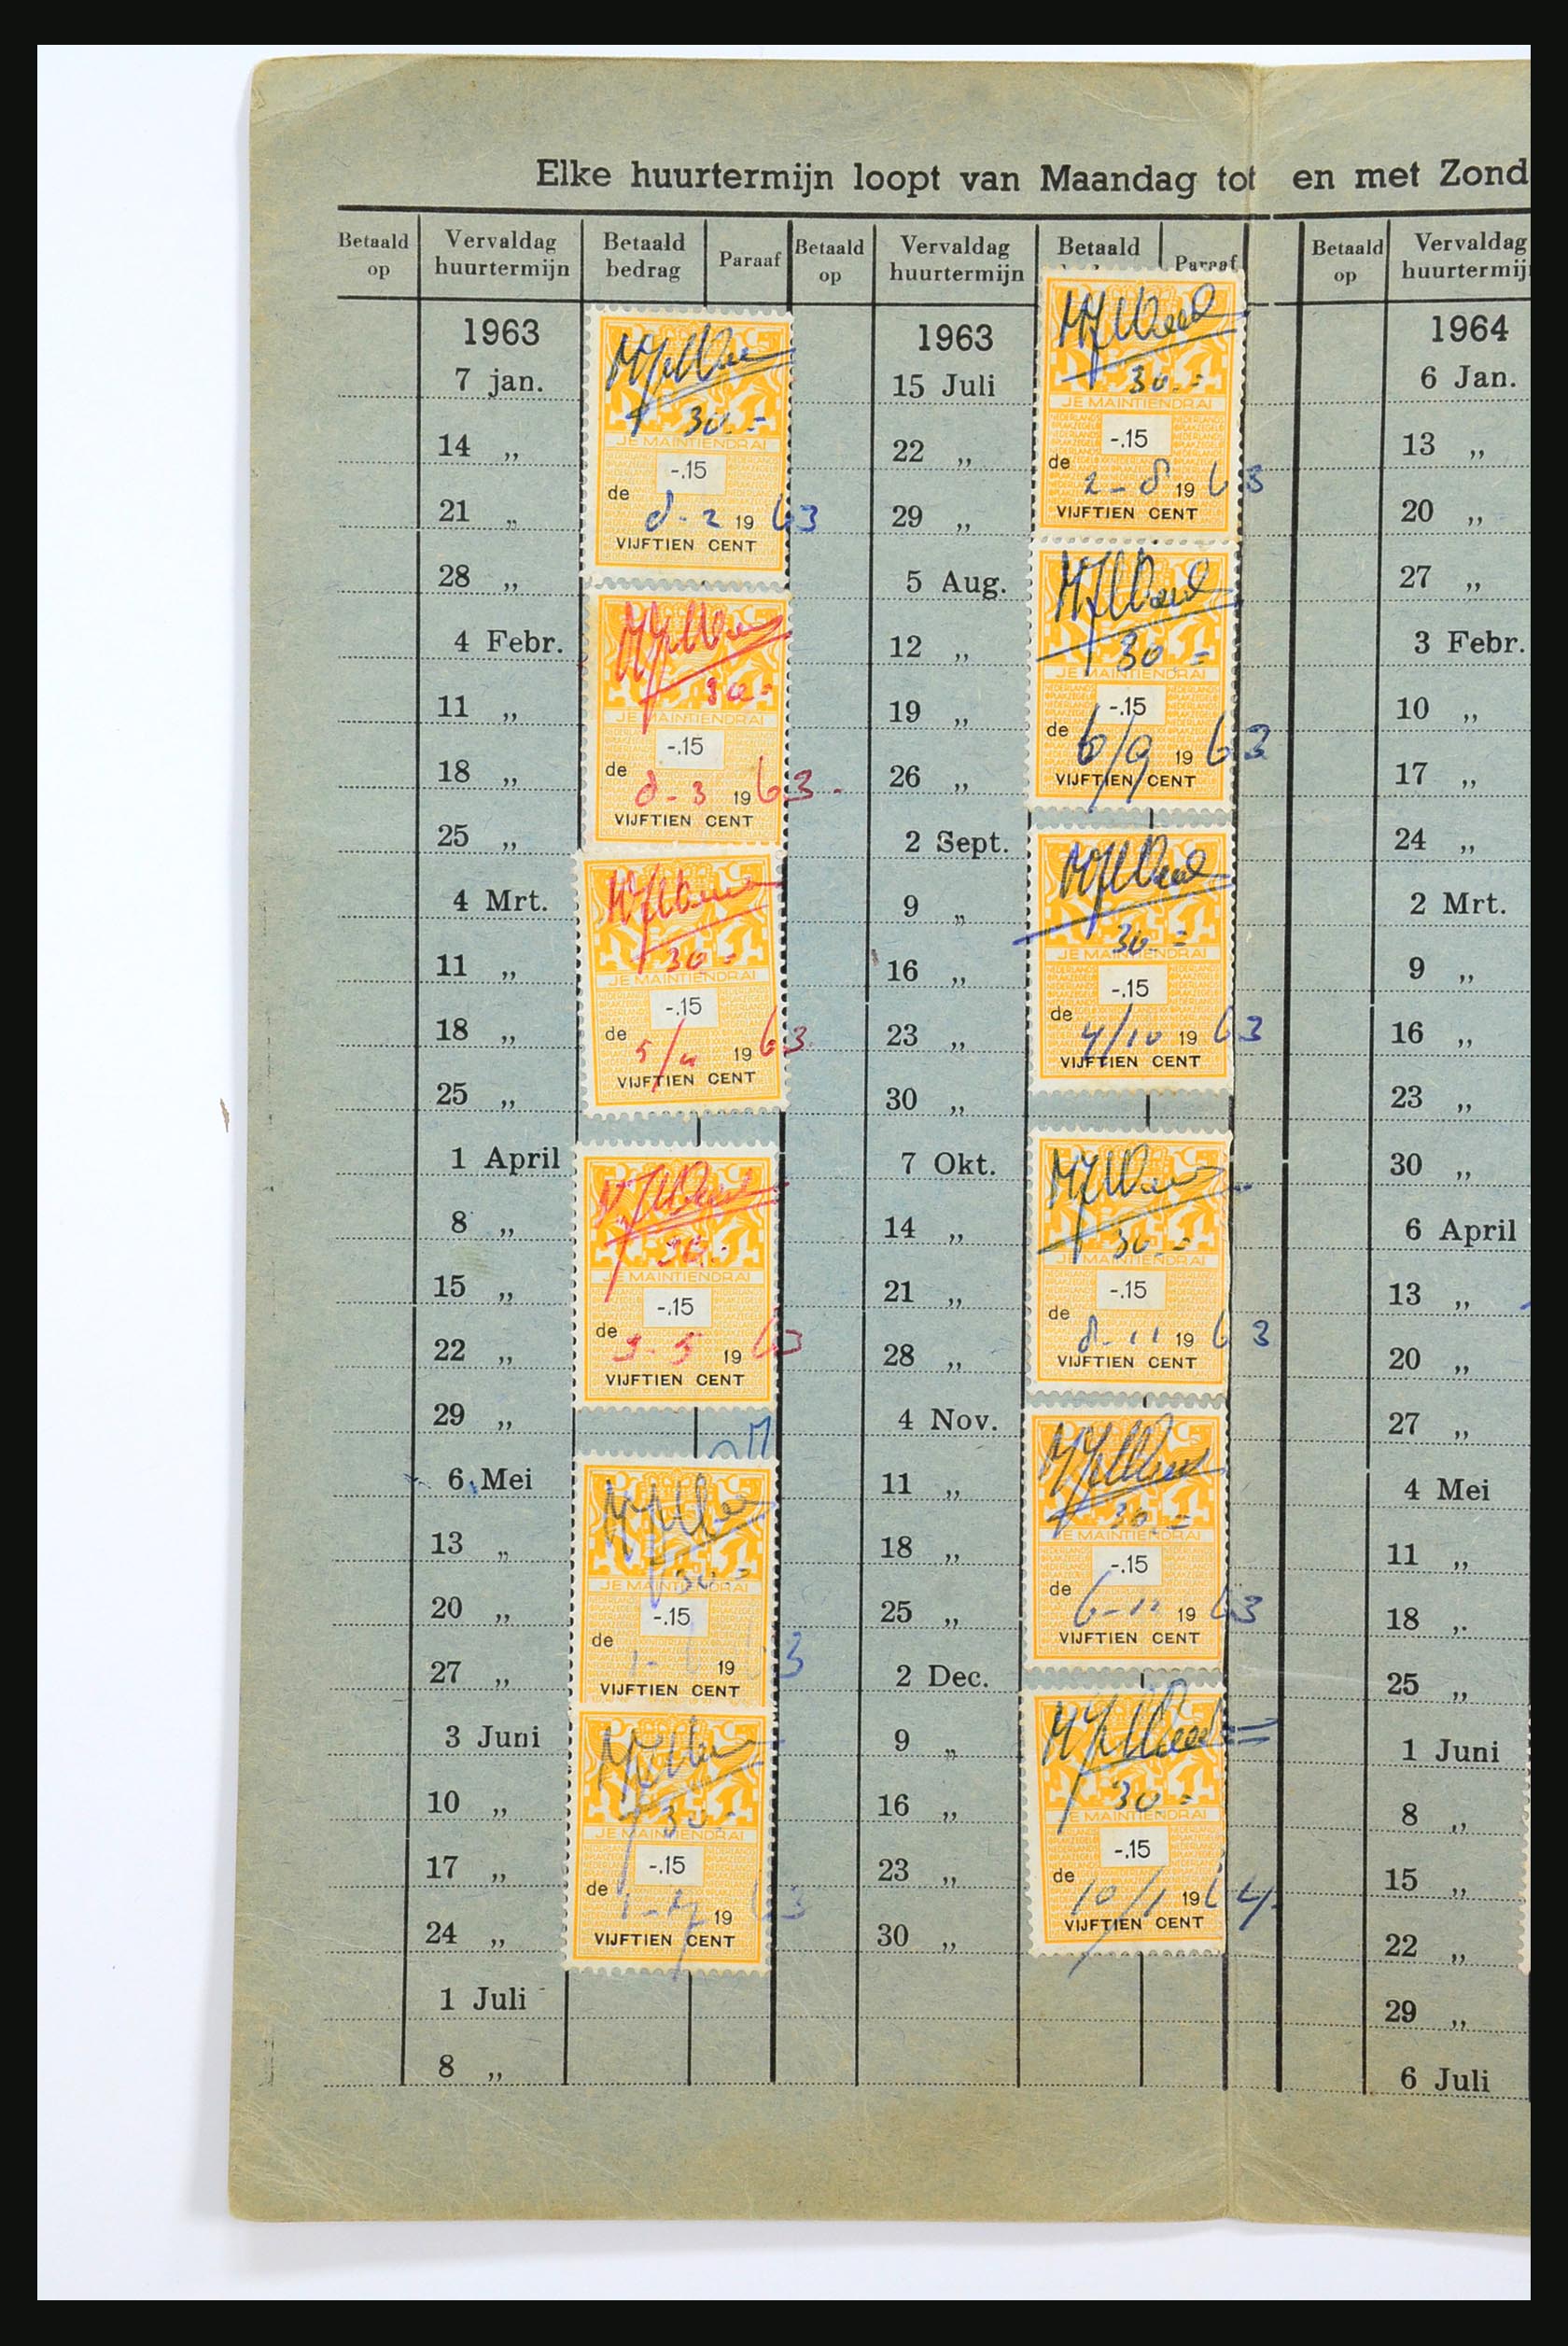 Elke huurtermijn loopt van Maandag tot en met Zond
Betaald op
Vervaldag huurtermijn
Betaald bedrag
Paraaf
Betaald op
Vervaldag huurtermijn
Betaald
Paraaf
Betaald op
Vervaldag
huurtermij
1963
7 jan.
14 „
21 „
28 „
4 Febr.
11 „
18 „
25 „
4 Mrt.
11 „
18 „
25 „
1 April
8 „
15 „
22 „
29 „
6 Mei
13 „
20 „
27 „
3 Juni
10 „
17 „
24 „
1 Juli
8 „
30.=
JE MAINTIENDRAI
-.15
de 8-2 1963
VIJFTIEN CENT
30=
JE MAINTIENDRAI
-.15
de 8-3 1963.
VIJFTIEN CENT
30=
JE MAINTIENDRAI
-.15
de 5/4 1963.
VIJFTIEN CENT
30.-
JE MAINTIENDRAI
-.15
de 3-5 1963
VIJFTIEN CENT
30-=
JE MAINTIENDRAI
-.15
de 19 3
VIJFTIEN CENT
30.-
JE MAINTIENDRAI
-.15
de 1-7 1963
VIJFTIEN CENT
1963
15 Juli
22 „
29 „
5 Aug.
12 „
19 „
26 „
2 Sept.
9 „
16 „
23 „
30 „
7 Okt.
14 „
21 „
28 „
4 Nov.
11 „
18 „
25 „
2 Dec.
9 „
16 „
23 „
30 „
30.=
JE MAINTIENDRAI
-.15
de 2-8 1963
VIJFTIEN CENT
30=
JE MAINTIENDRAI
-.15
de 6/9 1963
VIJFTIEN CENT
30=
JE MAINTIENDRAI
-.15
de 4/10 1963
VIJFTIEN CENT
30.=
JE MAINTIENDRAI
-.15
de 8-11 1963
VIJFTIEN CENT
30.=
JE MAINTIENDRAI
-.15
de 1963
VIJFTIEN CENT
30-
JE MAINTIENDRAI
-.15
de 10/1 1964.
VIJFTIEN CENT
1964
6 Jan.
13 „
20 „
27 „
3 Febr.
10 „
17 „
24 „
2 Mrt.
9 „
16 „
23 „
30 „
6 April
13 „
20 „
27 „
4 Mei
11 „
18 „
25 „
1 Juni
8 „
15 „
22 „
29 „
6 Juli